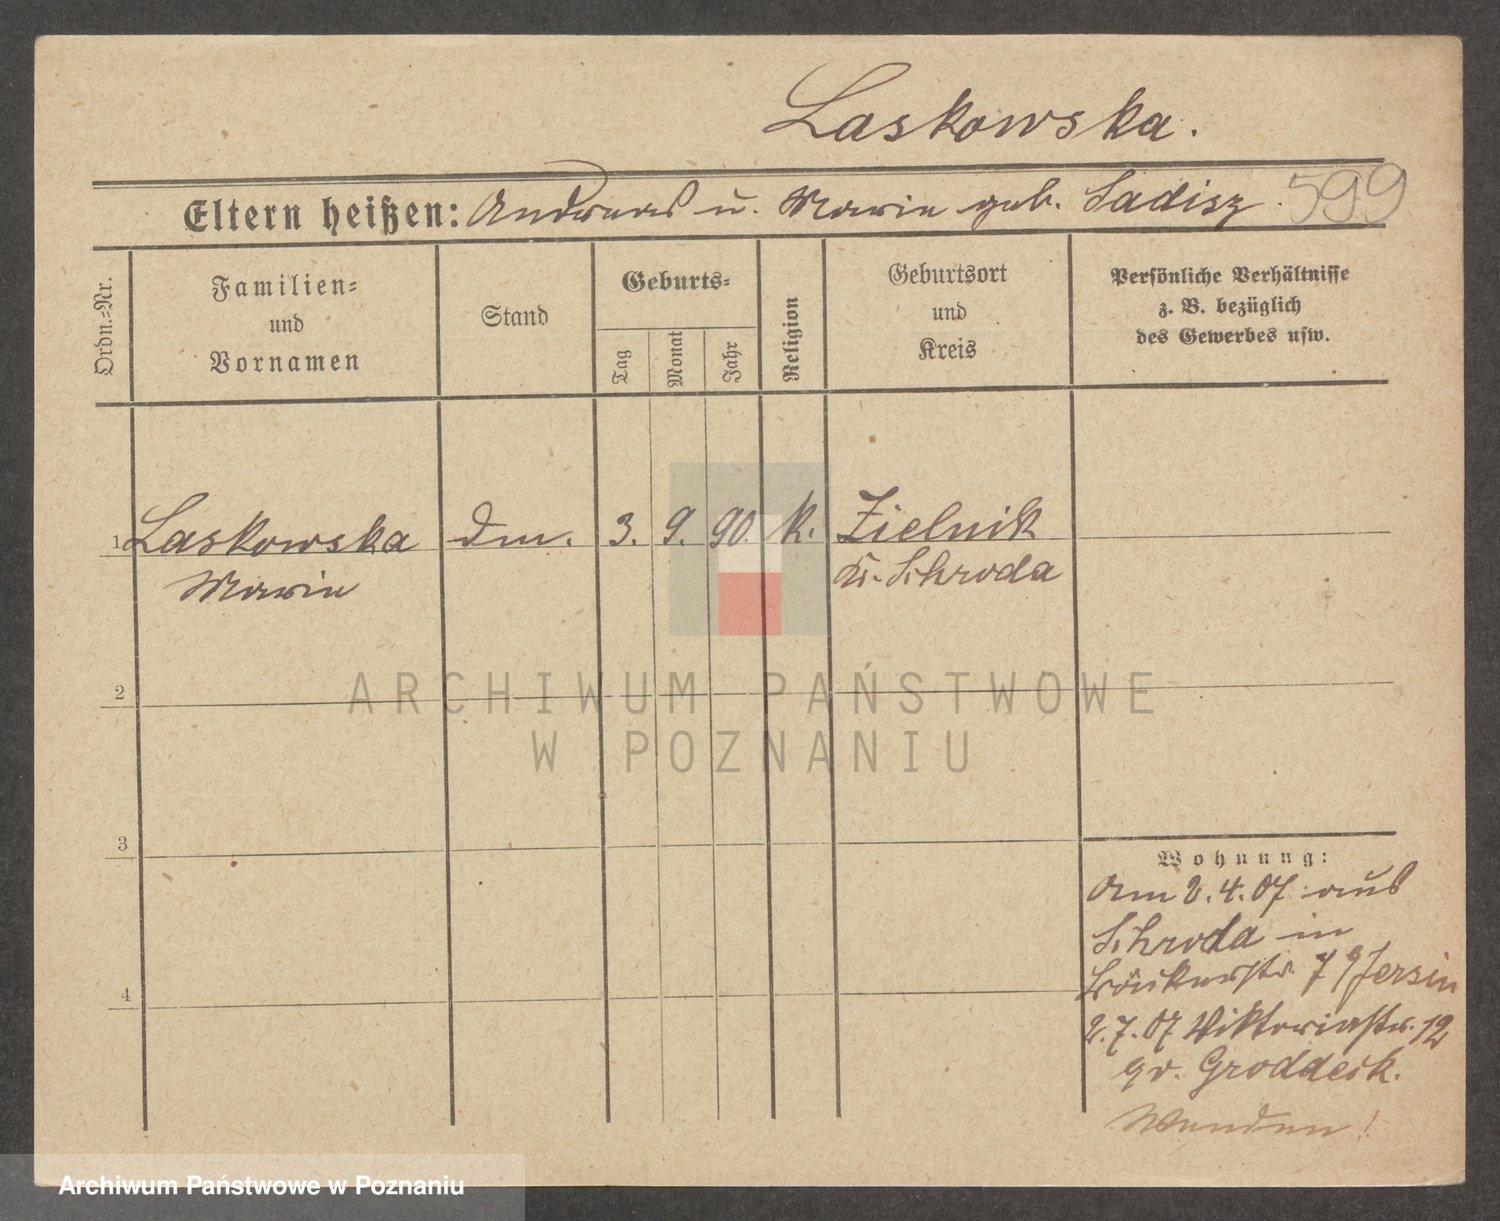 Laskowska.
Eltern heißen: Andreas u. Marie geb. Sadisz. 599
Ordn.=Nr.
Familien=
und
Vornamen
Stand
Geburts=
Tag
Monat
Jahr
Religion
Geburtsort
und
Kreis
Persönliche Verhältnisse
z. B. bezüglich
des Gewerbes usw.
1 Laskowska dm. 3. 9. 90. k. Zielnik
Marie Kr. Schroda
2
ARCHIWUM PAŃSTWOWE
W POZNANIU
3
Wohnung:
Am 2.4.07 aus
Schroda in
7 Jersin
4
2.7.07 Viktoriastr. 12
Groddeck.
Wenden!
Archiwum Państwowe w Poznaniu